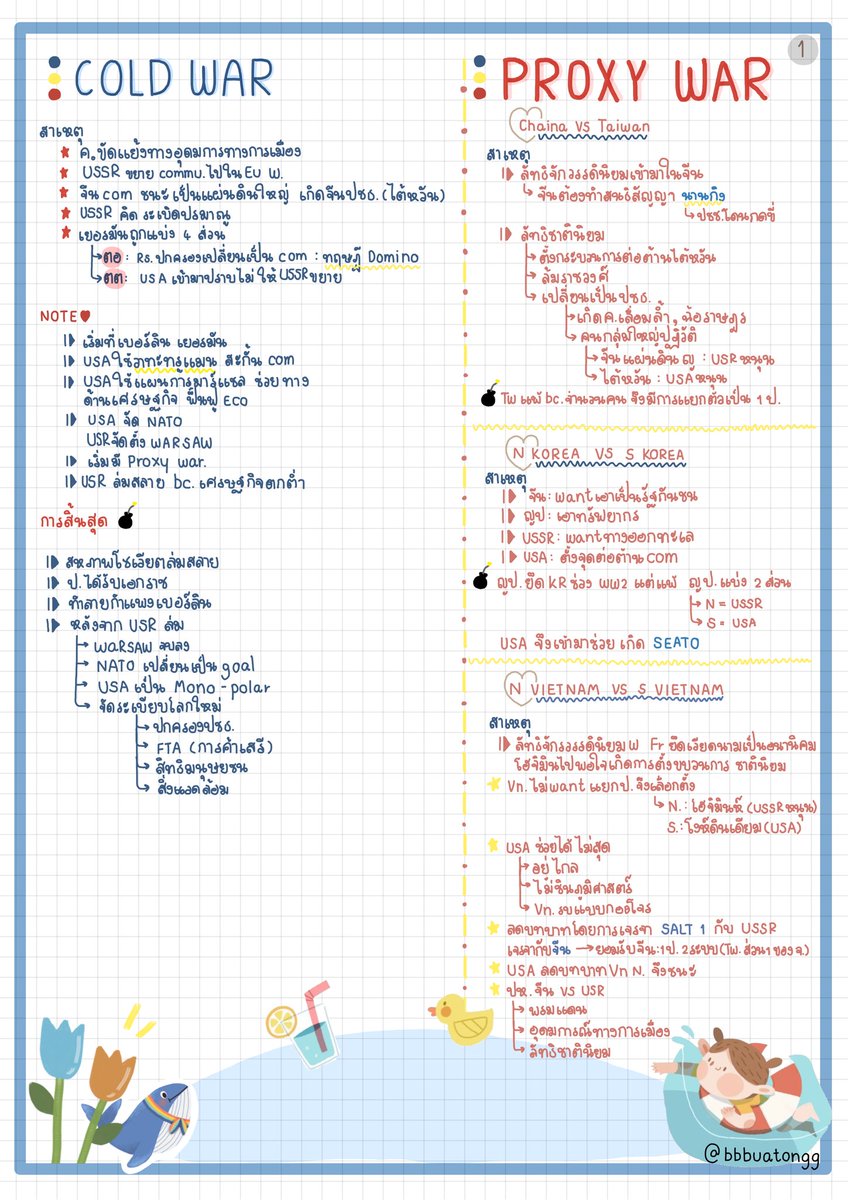 1
COLD WAR
สาเหตุ
ค.ขัดแย้งทางอุดมการทางการเมือง
USSR ขยาย commu. ไปใน EU W.
จีน com ชนะ เป็นแผ่นดินใหญ่ เกิดจีนปชธ. (ไต้หวัน)
USSR คิด ระเบิดปรมาณู
เยอรมันถูกแบ่ง 4 ส่วน
ตอ : Rs. ปกครองเปลี่ยนเป็น com : ทฤษฎี Domino
ตต : USA เข้ามาปราบไม่ให้ USSR ขยาย
NOTE
เริ่มที่เบอร์ลิน เยอรมัน
USA ใช้วาทะทรูแมน สะกั้น com
USA ใช้แผนการมาร์แชล ช่วยทาง
ด้านเศรษฐกิจ ฟื้นฟู ECO
USA จัด NATO
USR จัดตั้ง WARSAW
เริ่มมี Proxy war.
USR ล่มสลาย bc. เศรษฐกิจตกต่ำ
การสิ้นสุด
สหภาพโซเวียตล่มสลาย
ป.ได้รับเอกราช
ทำลายกำแพงเบอร์ลิน
หลังจาก USR ล่ม
WARSAW จบลง
NATO เปลี่ยนเป็น goal
USA เป็น Mono - polar
จัดระเบียบโลกใหม่
ปกครองปชธ.
FTA (การค้าเสรี)
สิทธิมนุษยชน
สิ่งแวดล้อม
PROXY WAR
Chaina VS Taiwan
สาเหตุ
ลัทธิจักวรรดินิยมเข้ามาในจีน
จีนต้องทำสนธิสัญญา นานกิง
ปชช.โดนกดขี่
ลัทธิชาตินิยม
ตั้งกระบวนการต่อต้านไต้หวัน
ล้มราชวงศ์
เปลี่ยนเป็นปชธ.
เกิดค.เลื่อมล้ำ , ฉ้อราษฎร
คนกลุ่มใหญ่ปฏิวัติ
จีนแผ่นดินญ : USR หนุน
ไต้หวัน : USA หนุน
TW แพ้ bc. จำนวนคน จึงมีการแยกตัวเป็น 1 ป.
N KOREA VS S KOREA
สาเหตุ
จีน : want เอาเป็นรัฐกันชน
ญป : เอาทรัพยากร
USSR : want ทางออกทะเล
USA : ตั้งจุดต่อต้าน com
ญป.ยึด KR ช่วง WW2 แต่แพ้ ญป.แบ่ง 2 ส่วน
N = USSR
S = USA
USA จึงเข้ามาช่วย เกิด SEATO
N VIETNAM VS S VIETNAM
สาเหตุ
ลัทธิจักรวรรดินิยม W Fr ยึดเวียดนามเป็นอนานิคม
โฮจิมินไปพอใจเกิดการตั้งขบวนการ ชาตินิยม
Vn. ไม่ want แยกป. จึงเลือกตั้ง
N. : โฮจิมินห์ (USSR หนุน)
S. : โงห์ดินเดียม (USA)
USA ช่วยได้ ไม่สุด
อยู่ไกล
ไม่ชินภูมิศาสตร์
Vn. รบแบบกองโจร
ลดบทบาทโดยการเจรจา SALT 1 กับ USSR
เจรจากับจีน → ยอมรับจีน : 1 ป. 2 ระบบ (TW. ส่วน 1 ของ จ.)
USA ลดบทบาท Vn N. จึงชนะ
ปห. จีน VS USR
พรมแดน
อุดมการณ์ทางการเมือง
ลัทธิชาตินิยม
@bbbuatongg